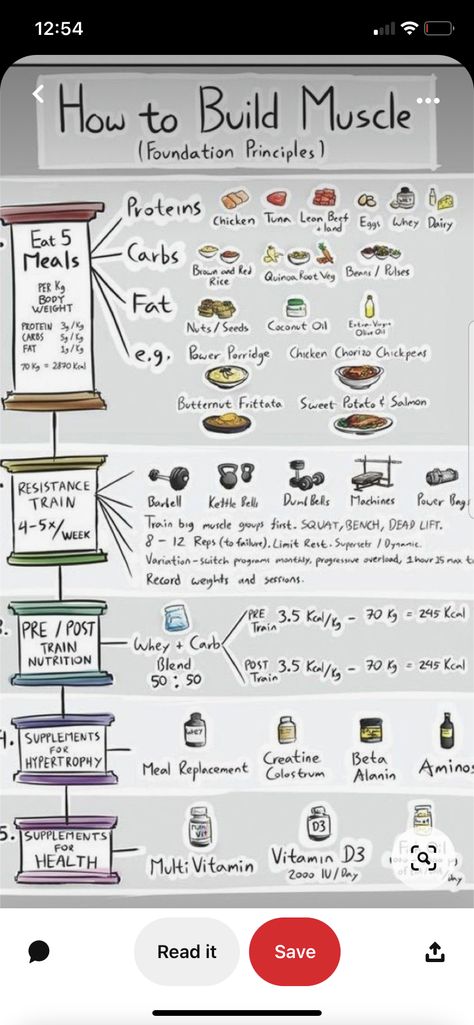 12:54
How to Build Muscle
(Foundation Principles)
Eat 5
Meals
PER Kg
BODY
WEIGHT
PROTEIN 3g/Kg
CARBS 5g/Kg
FAT 1g/Kg
70 Kg = 2870 Kcal
Proteins
Chicken Tuna Lean Beef + land Eggs Whey Dairy
Carbs
Brown and Red Rice Quinoa Root Veg Beans / Pulses
Fat
Nuts / Seeds Coconut Oil Extra-Virgin Olive Oil
e.g.
Power Porridge Chicken Chorizo Chickpeas
Butternut Frittata Sweet Potato & Salmon
RESISTANCE
TRAIN
4-5x/WEEK
Barbell Kettle Bells Dumb Bells Machines Power Bag
Train big muscle groups first. SQUAT, BENCH, DEAD LIFT.
8 - 12 Reps (to failure). Limit Rest. Supersets / Dynamic.
Variation - switch programs monthly, progressive overload, 1 hour 15 max
Record weights and sessions.
3.
PRE / POST
TRAIN
NUTRITION
Whey + Carb
Blend
50 : 50
PRE Train 3.5 Kcal/Kg - 70 Kg = 245 Kcal
POST Train 3.5 Kcal/Kg - 70 Kg = 245 Kcal
4.
SUPPLEMENTS
FOR
HYPERTROPHY
WHEY
Meal Replacement
Creatine
Colostrum
Beta
Alanin
Aminos
5.
SUPPLEMENTS
FOR
HEALTH
MultiVitamin
D3
Vitamin D3
2000 IU/Day
day
Read it
Save